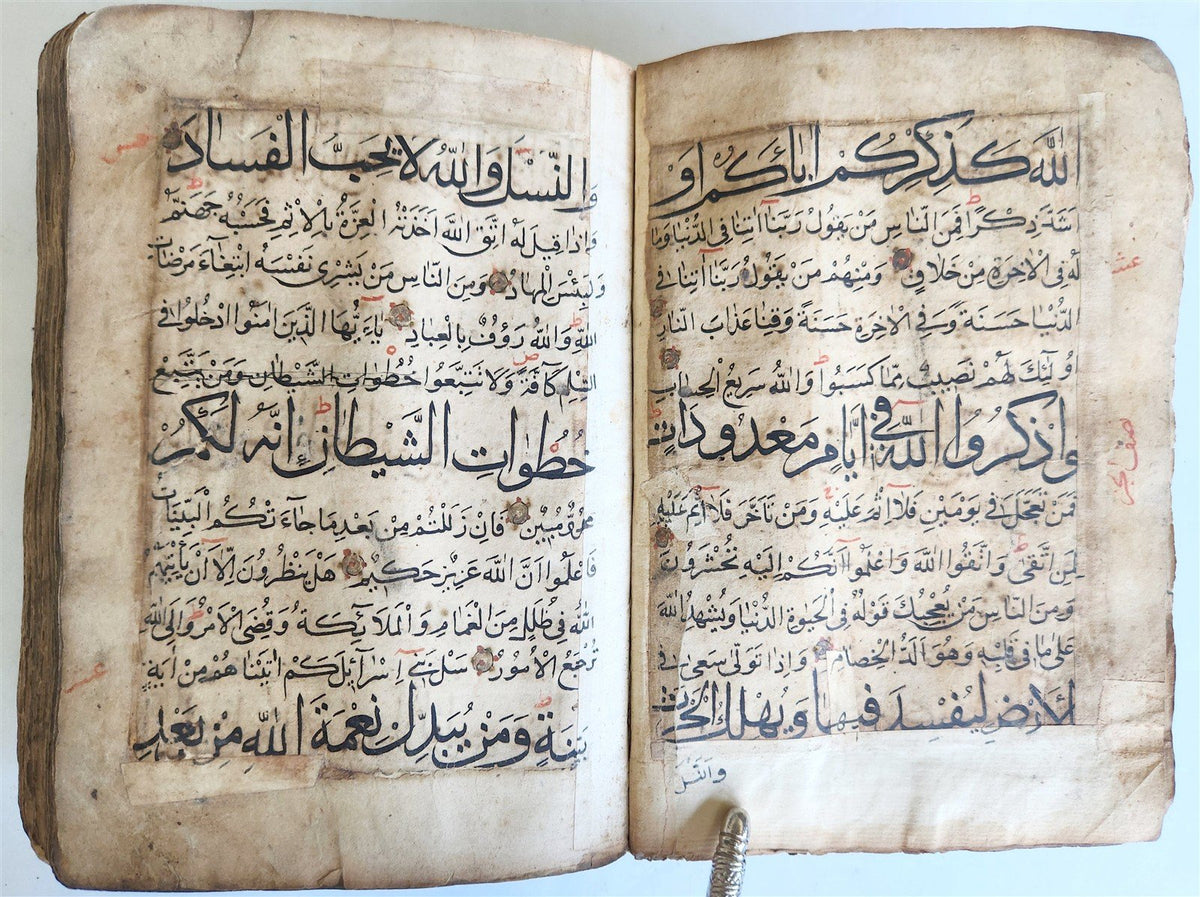 الله كَذِكْرِكُمْ اٰبَٓاءَكُمْ اَوْ
اَشَدَّ ذِكْرًا فَمِنَ النَّاسِ مَنْ يَقُولُ رَبَّنَا اٰتِنَا فِي الدُّنْيَا وَمَا
لَهُ فِي الْاٰخِرَةِ مِنْ خَلَاقٍ وَمِنْهُمْ مَنْ يَقُولُ رَبَّنَا اٰتِنَا فِي
عشر
الدُّنْيَا حَسَنَةً وَفِي الْاٰخِرَةِ حَسَنَةً وَقِنَا عَذَابَ النَّارِ
اُولٰٓئِكَ لَهُمْ نَصِيبٌ مِمَّا كَسَبُوا وَاللّٰهُ سَرِيعُ الْحِسَابِ
وَاذْكُرُوا اللّٰهَ فِي اَيَّامٍ مَعْدُودَاتٍ
فَمَنْ تَعَجَّلَ فِي يَوْمَيْنِ فَلَٓا اِثْمَ عَلَيْهِ وَمَنْ تَاَخَّرَ فَلَٓا اِثْمَ عَلَيْهِ
لِمَنِ اتَّقٰى وَاتَّقُوا اللّٰهَ وَاعْلَمُوا اَنَّكُمْ اِلَيْهِ تُحْشَرُونَ
وَمِنَ النَّاسِ مَنْ يُعْجِبُكَ قَوْلُهُ فِي الْحَيٰوةِ الدُّنْيَا وَيُشْهِدُ اللّٰهَ
عَلٰى مَا فِي قَلْبِهِ وَهُوَ اَلَدُّ الْخِصَامِ وَاِذَا تَوَلّٰى سَعٰى فِي
الْاَرْضِ لِيُفْسِدَ فِيهَا وَيُهْلِكَ الْحَرْثَ
والنسل
وَالنَّسْلَ وَاللّٰهُ لَا يُحِبُّ الْفَسَادَ
خمس
وَاِذَا قِيلَ لَهُ اتَّقِ اللّٰهَ اَخَذَتْهُ الْعِزَّةُ بِالْاِثْمِ فَحَسْبُهُ جَهَنَّمُ
وَلَبِئْسَ الْمِهَادُ وَمِنَ النَّاسِ مَنْ يَشْرِي نَفْسَهُ ابْتِغَٓاءَ مَرْضَاتِ
اللّٰهِ وَاللّٰهُ رَؤُفٌ بِالْعِبَادِ يَٓا اَيُّهَا الَّذِينَ اٰمَنُوا ادْخُلُوا فِي
السِّلْمِ كَٓافَّةً وَلَا تَتَّبِعُوا خُطُوَاتِ الشَّيْطَانِ وَمَنْ يَتَّبِعْ
خُطُوَاتِ الشَّيْطَانِ اِنَّهُ لَكُمْ
عَدُوٌّ مُبِينٌ فَاِنْ زَلَلْتُمْ مِنْ بَعْدِ مَا جَٓاءَتْكُمُ الْبَيِّنَاتُ
فَاعْلَمُوا اَنَّ اللّٰهَ عَزِيزٌ حَكِيمٌ هَلْ يَنْظُرُونَ اِلَّٓا اَنْ يَأْتِيَهُمُ
اللّٰهُ فِي ظُلَلٍ مِنَ الْغَمَامِ وَالْمَلَٓائِكَةُ وَقُضِيَ الْاَمْرُ وَاِلَى اللّٰهِ
تُرْجَعُ الْاُمُورُ سَلْ بَنِي اِسْرَٓائِلَ كَمْ اٰتَيْنَاهُمْ مِنْ اٰيَةٍ
عشر
بَيِّنَةٍ وَمَنْ يُبَدِّلْ نِعْمَةَ اللّٰهِ مِنْ بَعْدِ